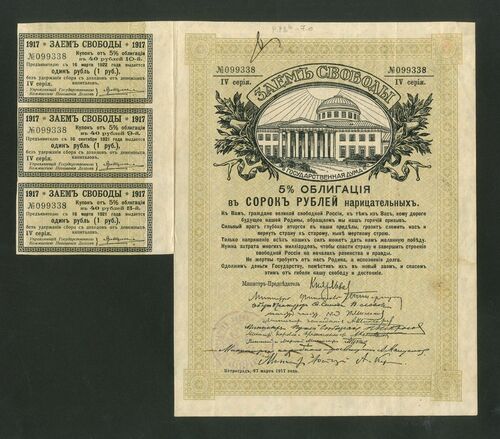 1917 * ЗАЕМЪ СВОБОДЫ * 1917
№099338
IV серія.
Купонъ отъ 5% облигаціи
въ 40 рублей 10-й.
Предъявителю съ 16 марта 1922 года выдается
одинъ рубль (1 руб.),
безъ удержанія сбора съ доходовъ отъ денежныхъ
капиталовъ.
Управляющій Государственною
Коммиссіею Погашенія Долговъ
1917 * ЗАЕМЪ СВОБОДЫ * 1917
№099338
IV серія.
Купонъ отъ 5% облигаціи
въ 40 рублей 9-й.
Предъявителю съ 16 сентября 1921 года выдается
одинъ рубль (1 руб.),
безъ удержанія сбора съ доходовъ отъ денежныхъ
капиталовъ.
Управляющій Государственною
Коммиссіею Погашенія Долговъ
1917 * ЗАЕМЪ СВОБОДЫ * 1917
№099338
IV серія.
Купонъ отъ 5% облигаціи
въ 40 рублей 8-й.
Предъявителю съ 16 марта 1921 года выдается
одинъ рубль (1 руб.),
безъ удержанія сбора съ доходовъ отъ денежныхъ
капиталовъ.
Управляющій Государственною
Коммиссіею Погашенія Долговъ
№099338
IV серія.
№099338
IV серія.
ЗАЕМЪ СВОБОДЫ
ГОСУДАРСТВЕННАЯ ДУМА
5% ОБЛИГАЦІЯ
въ СОРОКЪ РУБЛЕЙ нарицательныхъ.
Къ Вамъ, граждане великой свободной Россіи, къ тѣмъ изъ Васъ, кому дорого
будущее нашей Родины, обращаемъ мы нашъ горячій призывъ.
Сильный врагъ глубоко вторгся въ наши предѣлы, грозитъ сломить насъ и
вернуть страну къ старому, нынѣ мертвому строю.
Только напряженіе всѣхъ нашихъ силъ можетъ дать намъ желанную побѣду.
Нужна затрата многихъ милліардовъ, чтобы спасти страну и завершить строеніе
свободной Россіи на началахъ равенства и правды.
Не жертвы требуетъ отъ насъ Родина, а исполненія долга.
Одолжимъ деньги Государству, помѣстивъ ихъ въ новый заемъ, и спасемъ
этимъ отъ гибели нашу свободу и достояніе.
Министръ-Предсѣдатель
Петроградъ, 27 марта 1917 года.